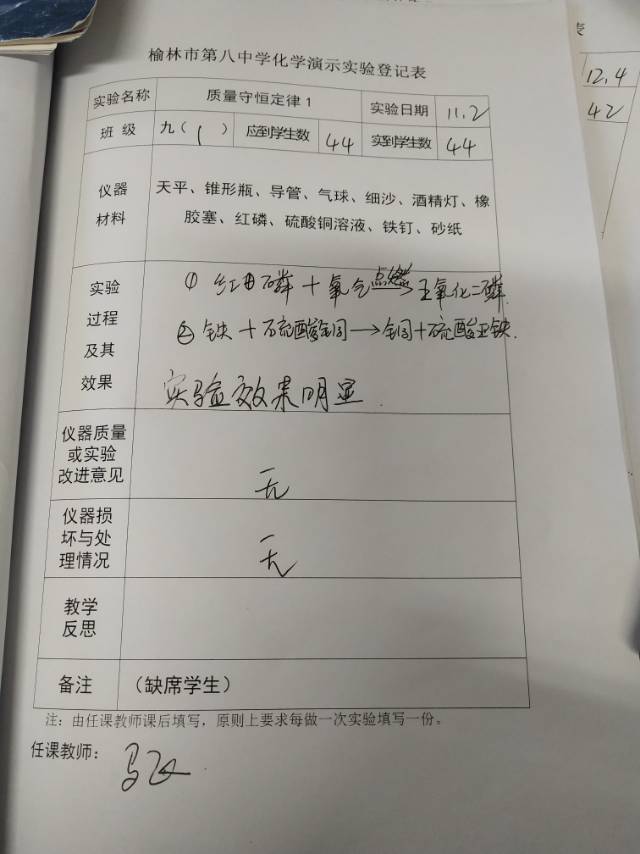 榆林市第八中学化学演示实验登记表
实验名称 质量守恒定律1 实验日期 11.2
班 级 九（1） 应到学生数 44 实到学生数 44
仪器
材料
天平、锥形瓶、导管、气球、细沙、酒精灯、橡
胶塞、红磷、硫酸铜溶液、铁钉、砂纸
实验
过程
及其
效果
① 红磷 + 氧气 点燃→ 五氧化二磷.
② 铁 + 硫酸铜 → 铜 + 硫酸亚铁.
实验效果明显.
仪器质量
或实验
改进意见
无
仪器损
坏与处
理情况
无
教学
反思
备注 （缺席学生）
注：由任课教师课后填写，原则上要求每做一次实验填写一份。
任课教师：
表
12.4
42